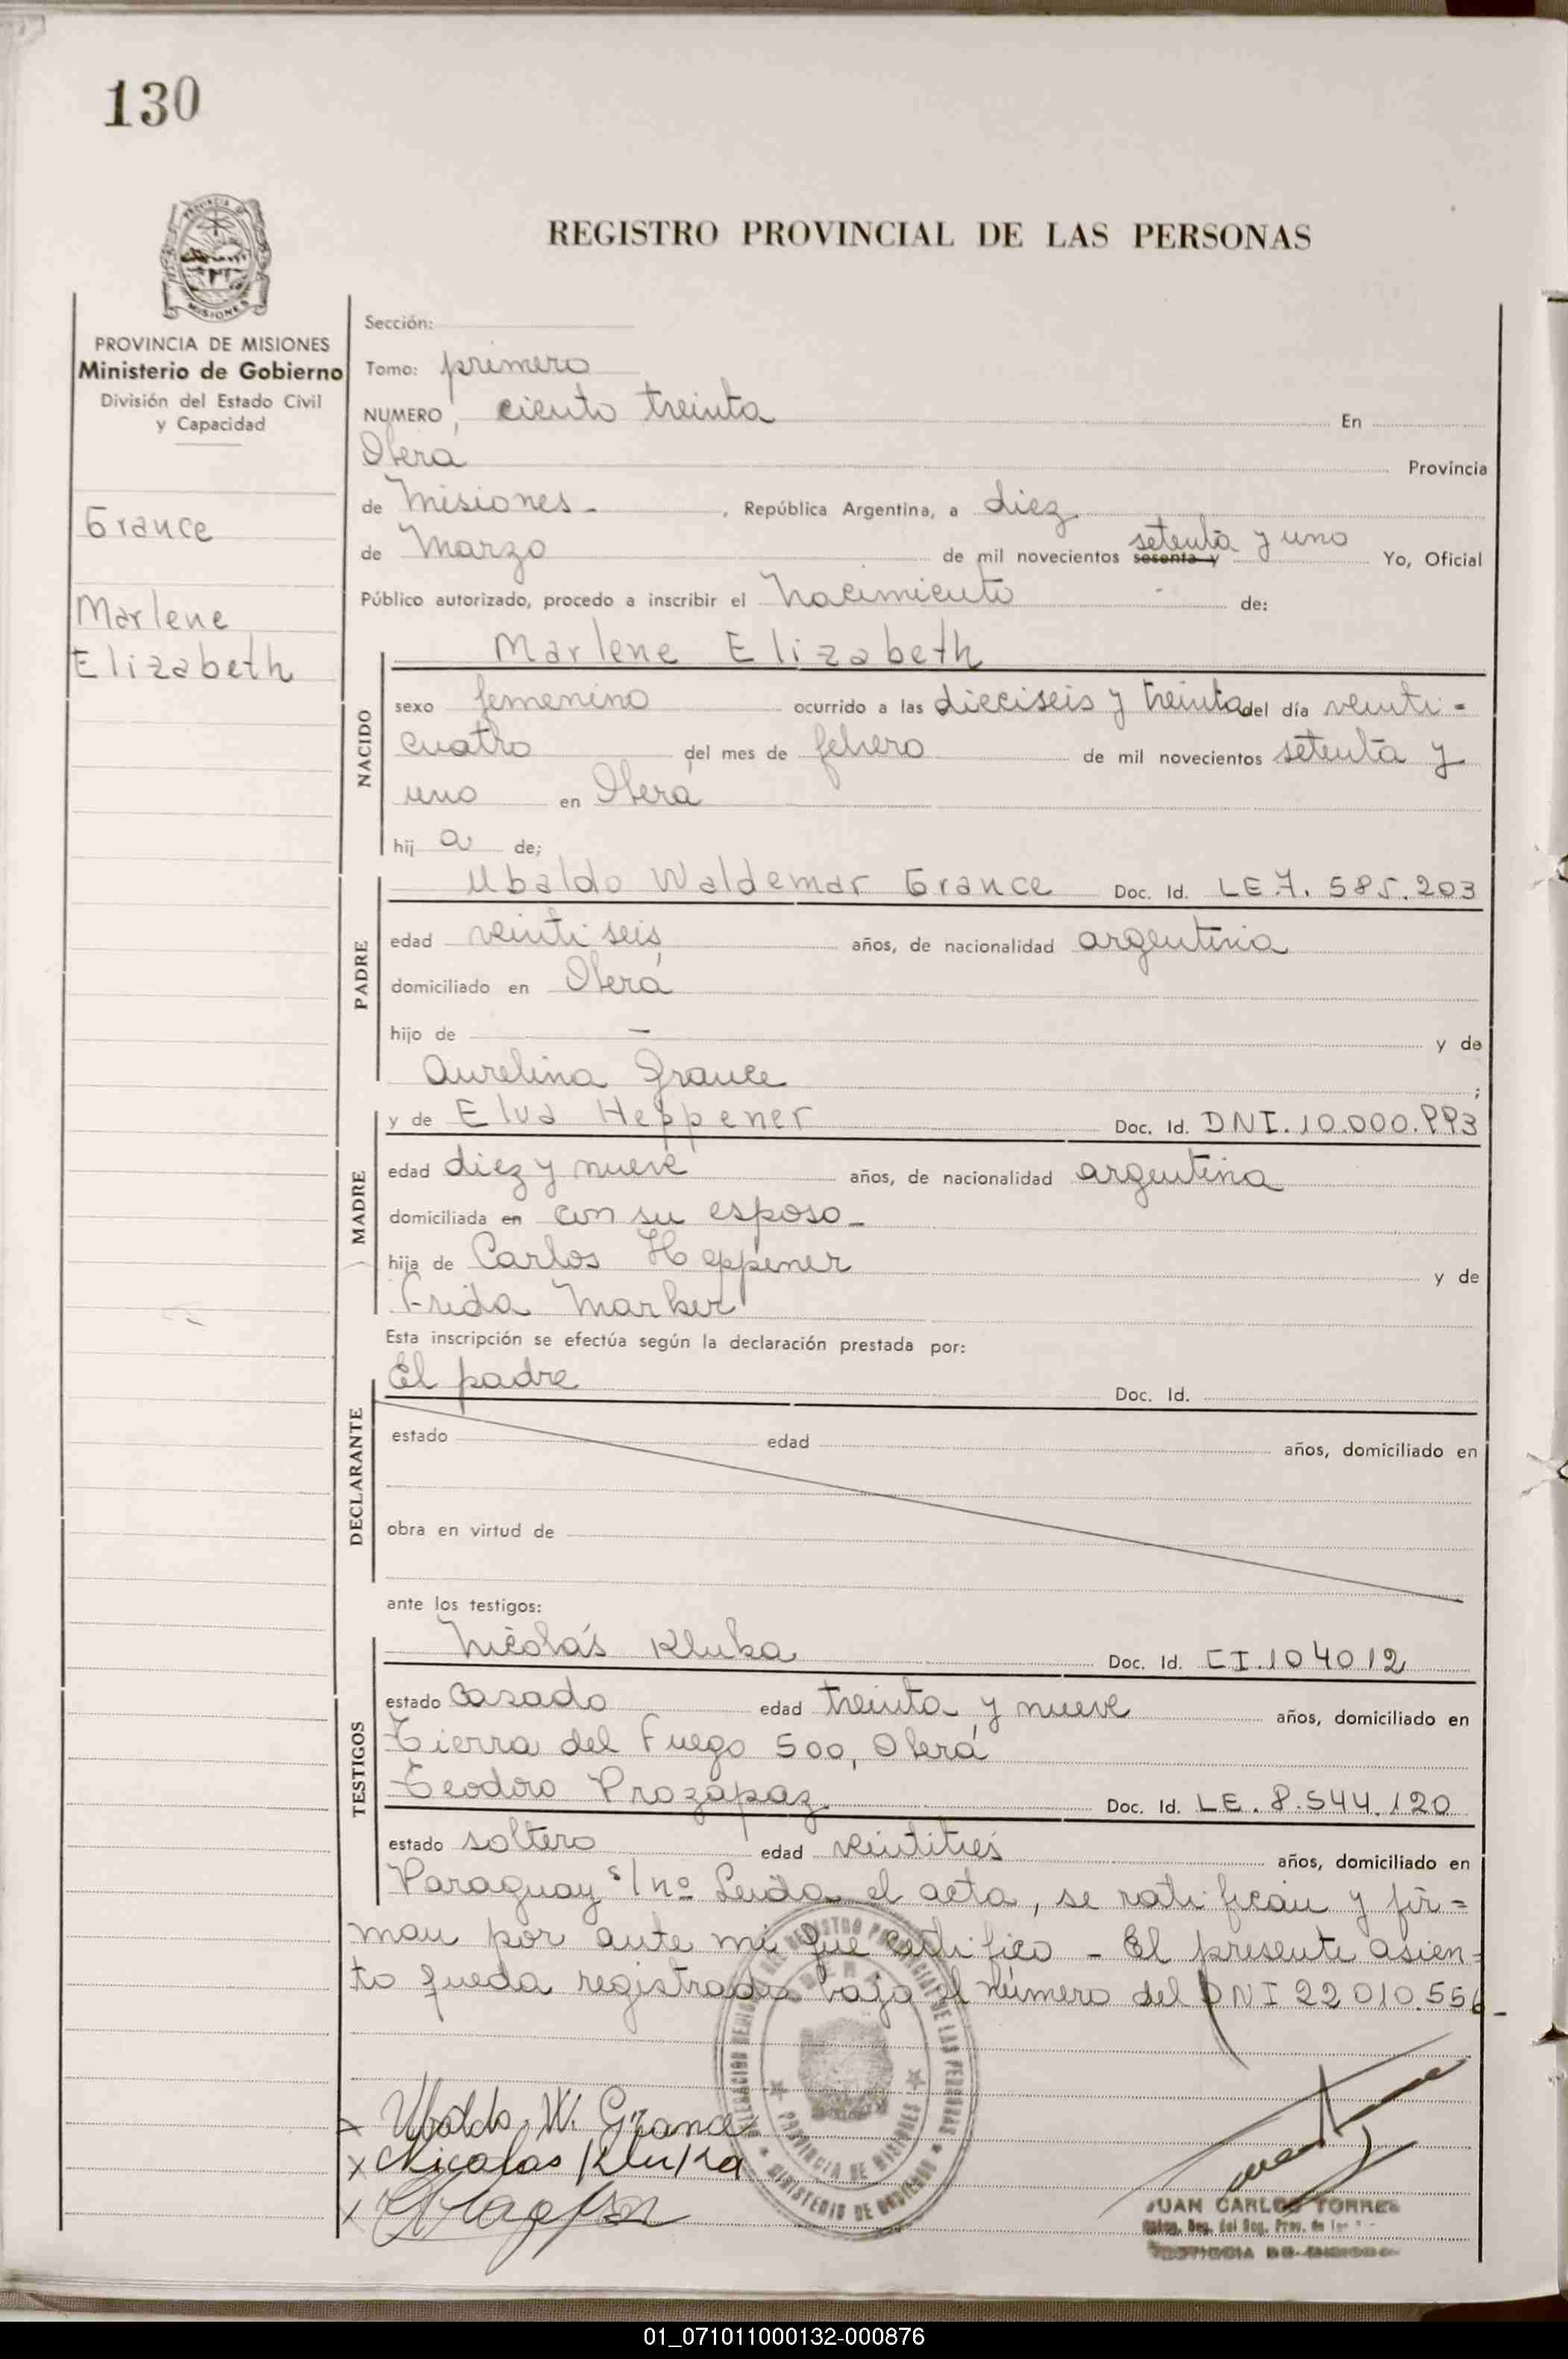 130
REGISTRO PROVINCIAL DE LAS PERSONAS
PROVINCIA DE
MISIONES
PROVINCIA DE MISIONES
Ministerio de Gobierno
División del Estado Civil
y Capacidad
Grance
Marlene
Elizabeth
Sección:
Tomo: primero
NUMERO, ciento treinta En
Oberá Provincia
de Misiones - , República Argentina, a diez
de Marzo de mil novecientos sesenta y setenta y uno Yo, Oficial
Público autorizado, procedo a inscribir el Nacimiento - de:
Marlene Elizabeth
NACIDO
sexo femenino ocurrido a las dieciseis y treinta del día veinti=
cuatro del mes de febrero de mil novecientos setenta y
uno en Oberá
hij a de;
PADRE
Ubaldo Waldemar Grance Doc. Id. LE.7.585.203
edad veinti seis años, de nacionalidad argentina
domiciliado en Oberá
hijo de — y de
Aurelina Grance ;
MADRE
y de Elva Heppener Doc. Id. DNI.10.000.993
edad diez y nueve años, de nacionalidad argentina
domiciliada en con su esposo -
hija de Carlos Heppener y de
Frida Marker
Esta inscripción se efectúa según la declaración prestada por:
DECLARANTE
El padre Doc. Id.
estado edad años, domiciliado en
obra en virtud de
ante los testigos:
TESTIGOS
Nicolás Kluka Doc. Id. CI.104012
estado casado edad treinta y nueve años, domiciliado en
Tierra del Fuego 500, Oberá
Teodoro Prozapaz Doc. Id. LE.8.544.120
estado soltero edad veintitres años, domiciliado en
Paraguay s/nº Leida el acta, se ratifican y fir=
man por ante mi que certifico - El presente asien-
to queda registrado bajo el número del DNI 22 010.556-
PROVINCIA DE MISIONES
MINISTERIO DE GOBIERNO
x Ubaldo W. Grance
x Nicolas Kluka
x
JUAN CARLOS TORRES
01_071011000132-000876